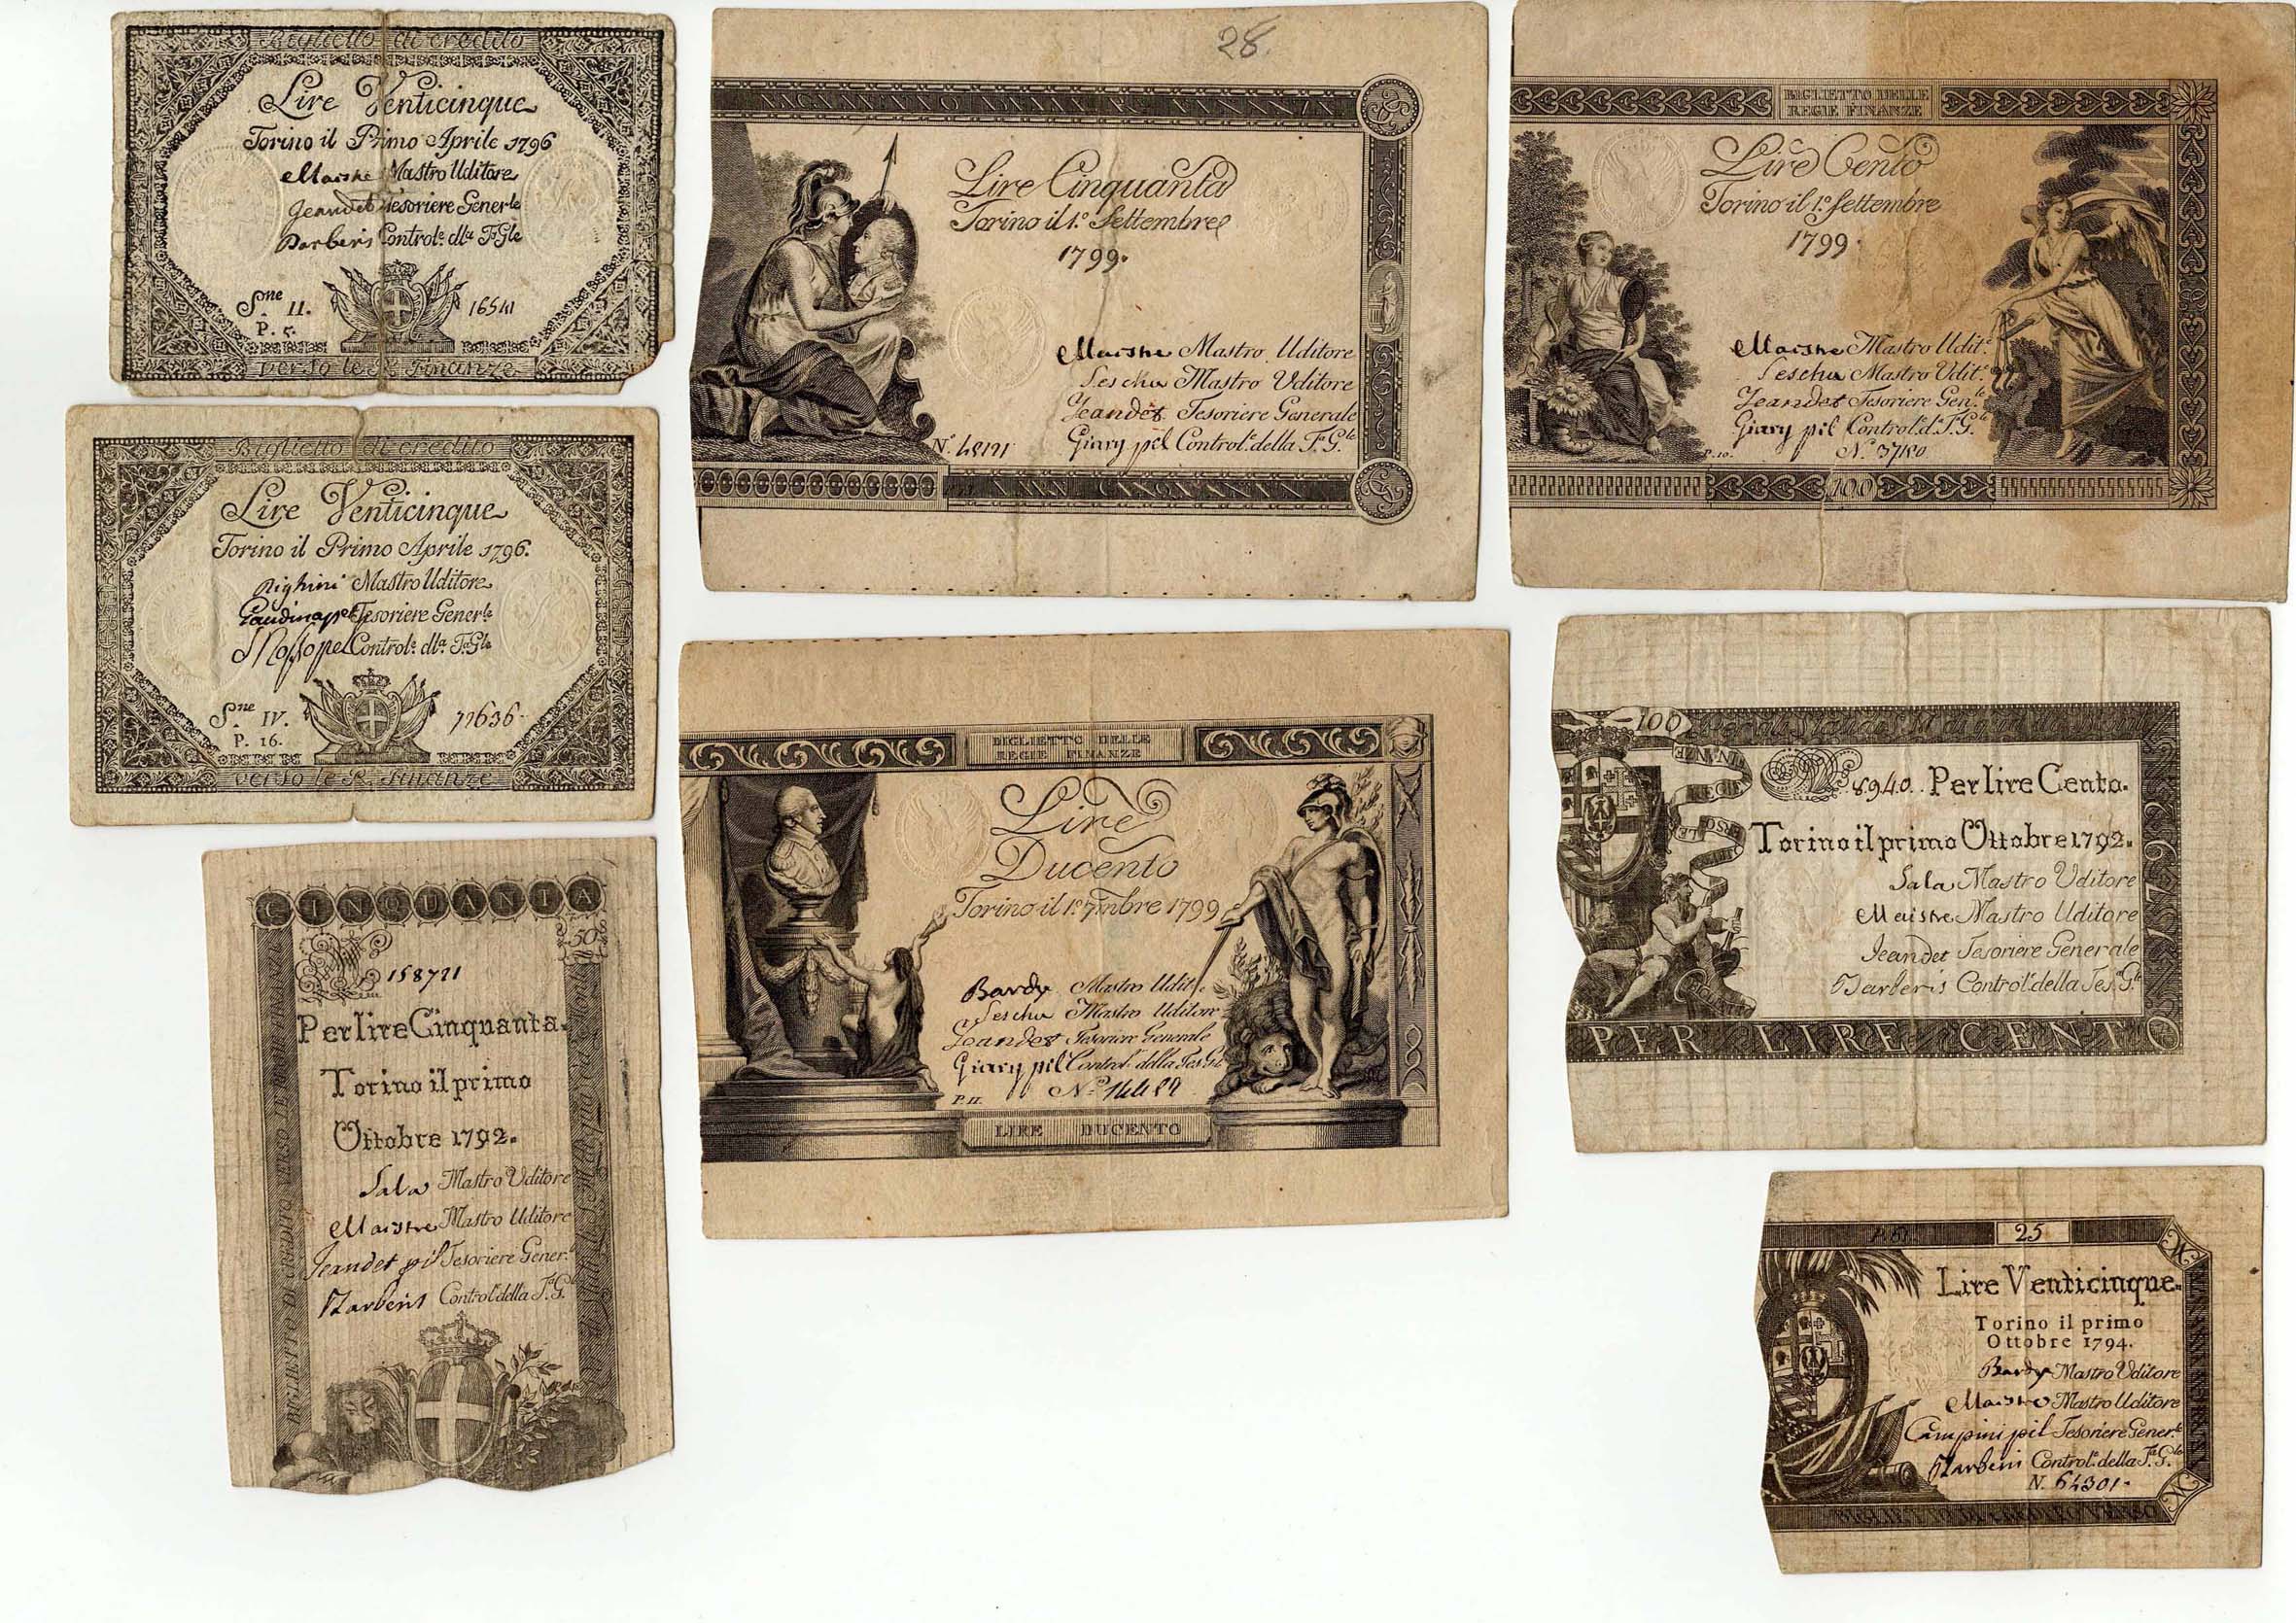 Biglietto di credito
Lire Venticinque
Torino il Primo Aprile 1796
Maistre Mastro Uditore
Jeandet Tesoriere Gener.le
Barberis Control.e dlla T.Gle
S.ne II. 16541
P. 5.
verso le R. Finanze
Biglietto di credito
Lire Venticinque
Torino il Primo Aprile 1796.
Righini Mastro Uditore
Tesoriere Gener.le
Control.e dlla T.Gle
S.ne IV. 71636
P. 16.
verso le R. Finanze
CINQUANTA
50
158721
Per lire Cinquanta.
Torino il primo
Ottobre 1792.
Sala Mastro Uditore
Maistre Mastro Uditore
Jeandet pil Tesoriere Gener.le
Barberis Control.e della T.G.
BIGLIETTO DI CREDITO VERSO LE REGIE FINANZE
28.
Lire Cinquanta
Torino il 1.º Settembre
1799.
Maistre Mastro Uditore
Mastro Uditore
Jeandet Tesoriere Generale
Giary pil Control.e della T.a G.le
N.º 48191
BIGLIETTO DELLE
REGIE FINANZE
Lire
Ducento
Torino il 1.º 7mbre 1799
Bardy Mastro Udit.e
Mastro Uditore
Jeandet Tesoriere Generale
Giary pil Control.e della Tes. G.le
P. 11. N.º
LIRE DUCENTO
BIGLIETTO DELLE
REGIE FINANZE
Lire Cento
Torino il 1.º Settembre
1799.
Maistre Mastro Udit.e
Mastro Udit.e
Jeandet Tesoriere Gen.le
Giary pil Control.e d.a T.G.
P. 10. N.º 37180
100
100
8940. Per lire Cento.
Torino il primo Ottobre 1792.
Sala Mastro Uditore
Maistre Mastro Uditore
Jeandet Tesoriere Generale
Barberis Control.e della Tes. G.le
PER LIRE CENTO
P. 61. 25
Lire Venticinque.
Torino il primo
Ottobre 1794.
Bardy Mastro Uditore
Maistre Mastro Uditore
Campini pil Tesoriere Gener.le
Barberis Control.e della T.a G.le
N. 64301.
BIGLIETTO DI CREDITO VERSO